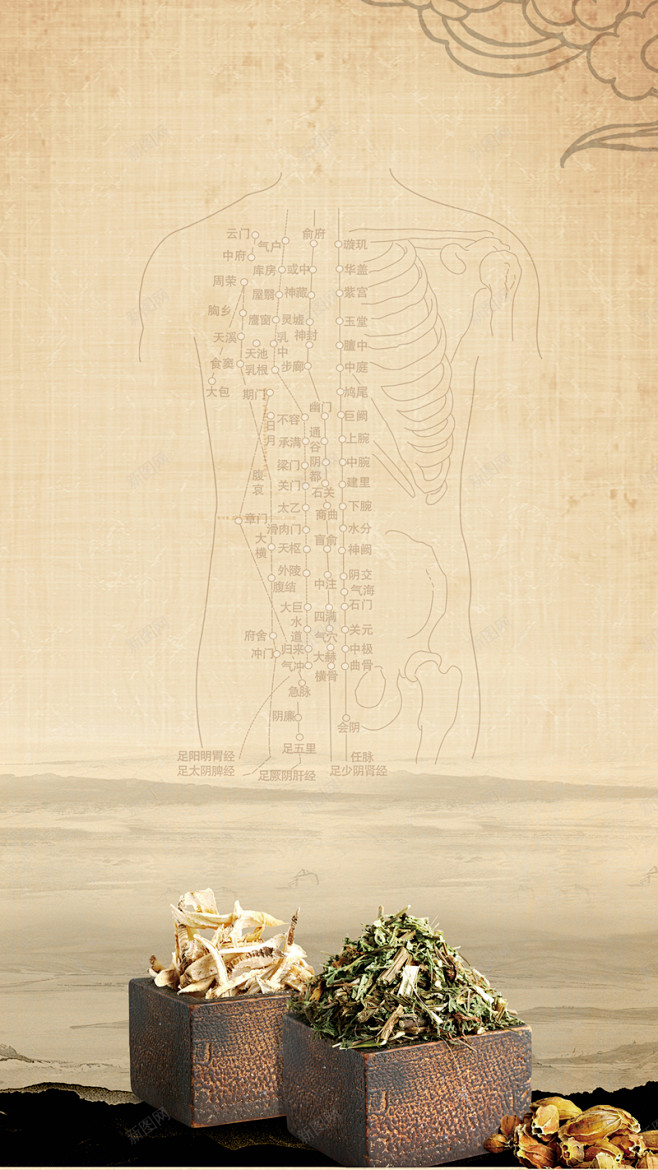 云门
气户
俞府
璇玑
中府
库房
或中
华盖
周荣
屋翳
神藏
紫宫
胸乡
膺窗
灵墟
玉堂
天溪
乳中
神封
膻中
天池
食窦
乳根
步廊
中庭
大包
期门
鸠尾
幽门
日月
不容
巨阙
通谷
承满
上脘
梁门
阴都
中脘
腹哀
关门
石关
建里
太乙
商曲
下脘
章门
滑肉门
水分
大横
天枢
肓俞
神阙
外陵
阴交
腹结
中注
气海
大巨
石门
水道
四满
关元
府舍
气穴
归来
中极
冲门
大赫
气冲
曲骨
横骨
急脉
阴廉
会阴
足五里
足阳明胃经
任脉
足太阴脾经
足厥阴肝经
足少阴肾经